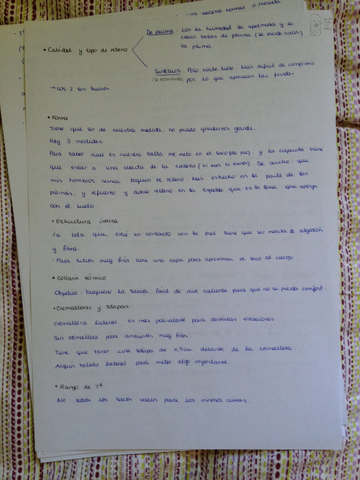 De pluma con la humedad se apelmaza y se
crean bolas de pluma (se puede caler)
la pluma
• Calidad y tipo de relleno
Sintéticos: Peso mucho más difícil de comprimir
por lo que aparecen las fundas.
→ Los 2 son buenos
• Forma
Tiene que ser de nuestra medida, no puede quedarnos grande.
Hay 3 medidas.
Para saber cual es nuestra talla me meto en el saco (de pie) y la capucha tiene
que estar a una cuarta de la cabeza (ni mas ni menos). De ancho que
mis hombros nunca toquen el relleno. Más estrecho en la parte de las
piernas, y refuerzo y doble relleno en la espalda que es la zona que apoya
con el suelo.
• Estructura interna
La tela que está en contacto con la piel tiene que ser mezcla de algodón
y fibra.
Para sitios muy fríos tiene una capa para aproximar el saco al cuerpo.
• Collarín térmico
Objetivo: bloquear la salida fácil de aire caliente para que no se pierda comfort.
• Cremalleras y solapas.
Cremallera lateral es más polivalente para distintas estaciones
Sin cremallera para ambientes muy fríos.
Tiene que tener una solapa de delante de la cremallera
Algún bolsillo lateral para meter algo importante.
• Rango de Tª
No todos los sacos valen para los mismos climas.